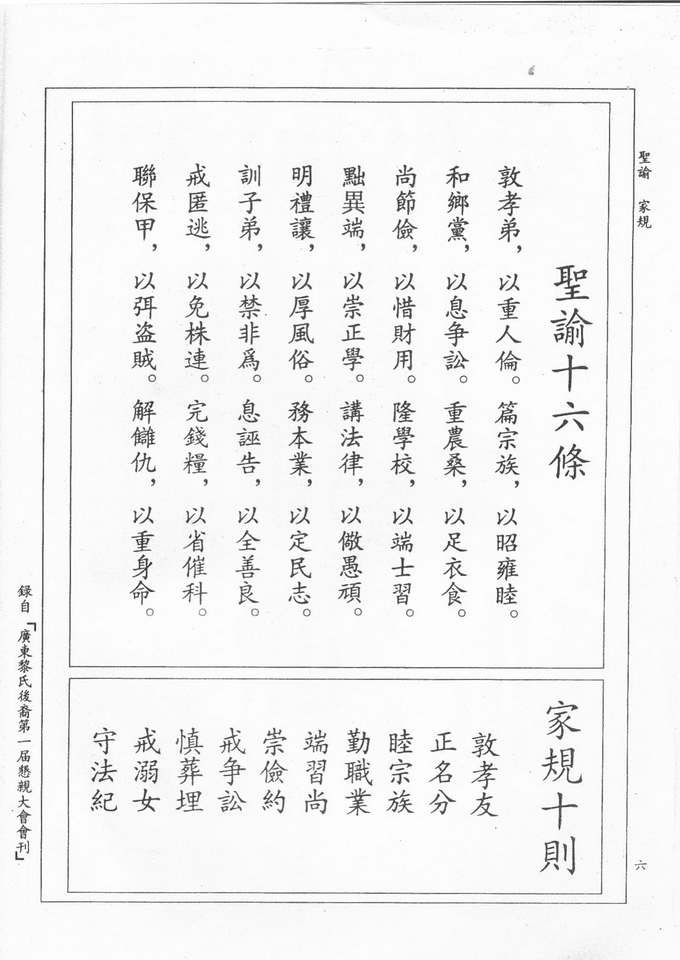 聖諭 家規
聖諭十六條
敦孝弟，以重人倫。篇宗族，以昭雍睦。
和鄉黨，以息爭訟。重農桑，以足衣食。
尚節儉，以惜財用。隆學校，以端士習。
黜異端，以崇正學。講法律，以儆愚頑。
明禮讓，以厚風俗。務本業，以定民志。
訓子弟，以禁非爲。息誣告，以全善良。
戒匿逃，以免株連。完錢糧，以省催科。
聯保甲，以弭盜賊。解讎仇，以重身命。
家規十則
敦孝友
正名分
睦宗族
勤職業
端習尚
崇儉約
戒爭訟
慎葬埋
戒溺女
守法紀
錄自「廣東黎氏後裔第一届懇親大會會刊」
六